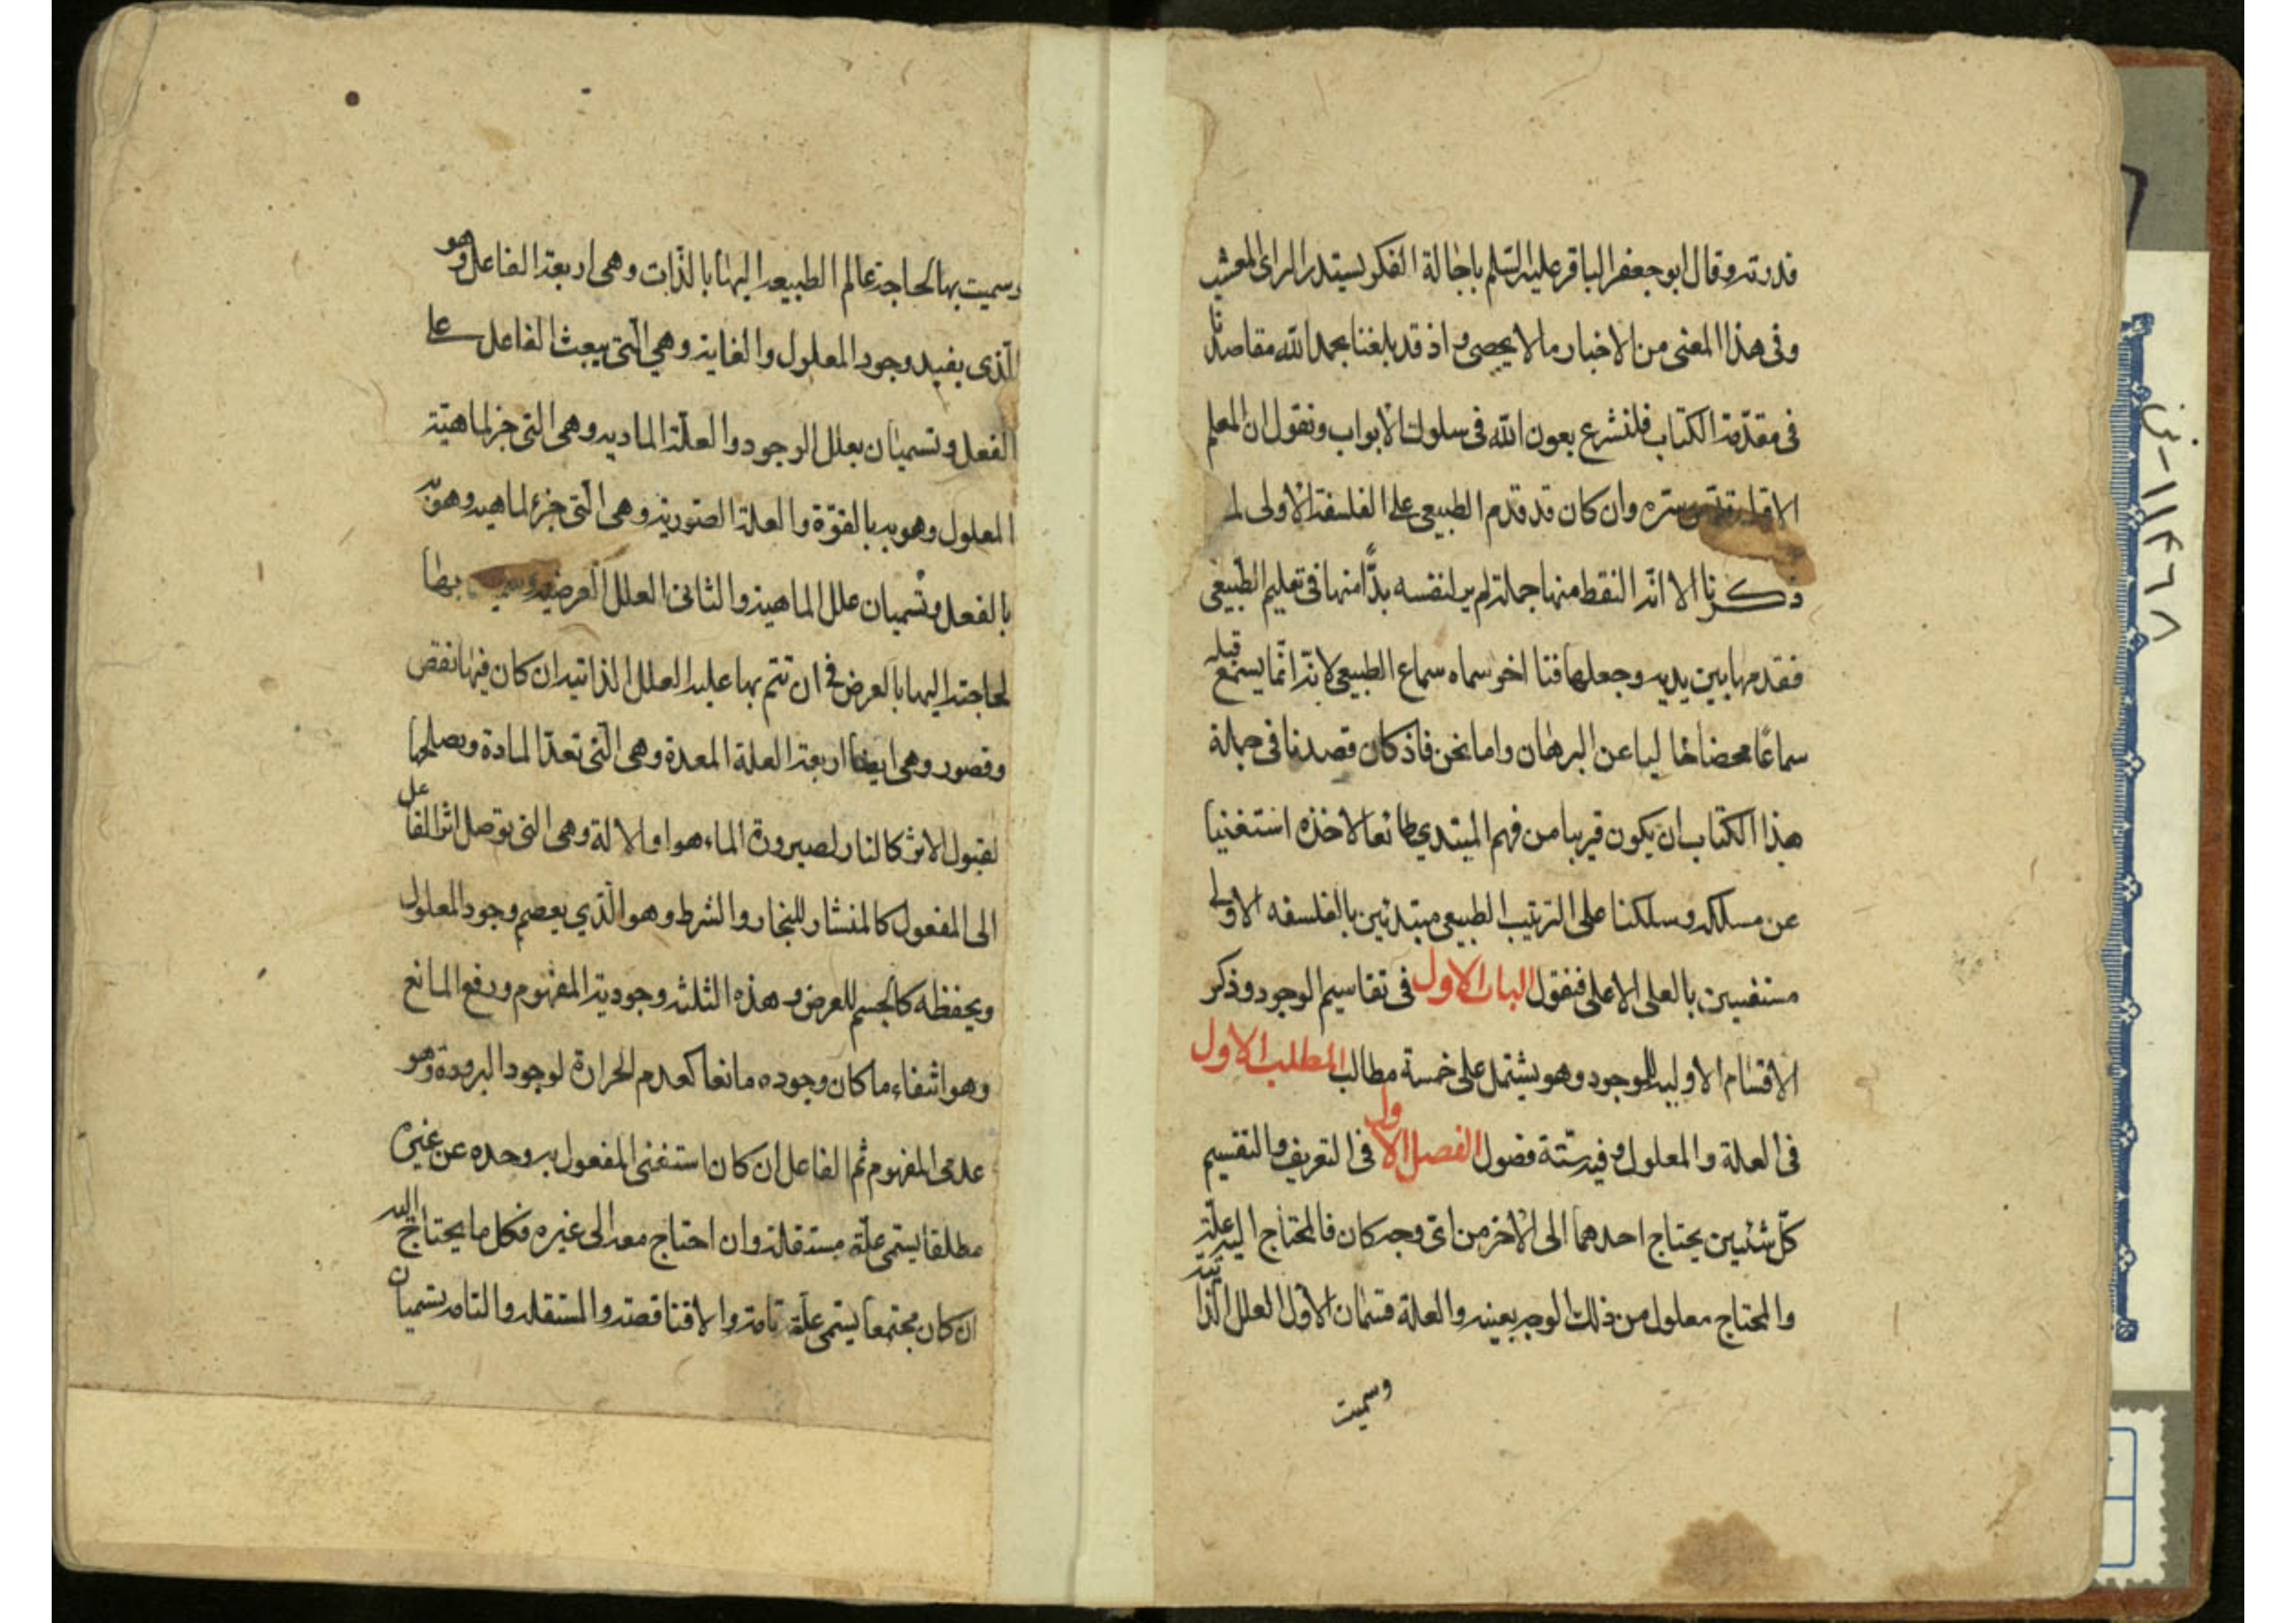 قدرته وقال ابو جعفر الباقر عليه السّلم باجالة الفكر يستدر الراى المعشب
وفى هذا المعنى من الاخبار ما لا يحصى واذ قد بلغنا بحمد الله مقاصدنا
فى مقدّمة الكتاب فلنشرع بعون الله فى سلوك الابواب ونقول ان المعلم
الاول سره وان كان قد قدم الطبيعى على الفلسفة الاولى لما
ذكرنا الا انّه التقط منها جملة لم ير لنفسه بدًّا منها فى تعليم الطّبيعى
فقدمها بين يديه وجعلها فنا اخر سماه سماع الطبيعى لانّه انّما يسمع قبله
سماعًا محضا خاليا عن البرهان واما نحن فاذ كان قصدنا فى جملة
هذا الكتاب ان يكون قريبا من فهم المبتدي طائعا لاخذه استغنينا
عن مسلكه وسلكنا على الترتيب الطبيعى مبتدئين بالفلسفه الاولى
مستفيين بالعلى الاعلى فنقول الباب الاول فى تقاسيم الوجود وذكر
الاقسام الاوليه للوجود وهو يشتمل على خمسة مطالب المطلب الاول
فى العلة والمعلول وفيه ستّة فصول الفصل الاول فى التعريف والتقسيم
كلّ شئيين يحتاج احدهما الى الاخر من اىّ وجه كان فالمحتاج اليه علّة
والمحتاج معلول من ذلك الوجه بعينه والعلة قسمان الاول العلل الذاتية
وسميت
وسميت بها لحاجة عالم الطبيعه اليها بالذّات وهى اربعة الفاعل وهو
الّذى يفيد وجود المعلول والغاية وهي الّتى يبعث الفاعل على
الفعل وتسميان بعلل الوجود والعلّة الماديه وهى التى جزء لماهيّة
المعلول وهو به بالقوّة والعلة الصّورية وهى الّتى جزء لماهيه وهو به
بالفعل وتسميان علل الماهية والثانى العلل العرضيه بها
لحاجته اليها بالعرض فى ان تتم بها عليه العلل الذاتيه ان كان فيها نقص
وقصور وهى ايضا اربعة العلة المعدة وهى الّتى تعدّ المادة ويصلحها
لقبول الاثر كالنار لصيرورة الماء هواء والالة وهى التى توصل اثر الفاعل
الى المفعول كالمنشار للنجار والشرط وهو الّذي يعصم وجود المعلول
ويحفظه كالجسم للعرض وهذه الثلثه وجودية المفهوم ورفع المانع
وهو انتفاء ما كان وجوده مانعا كعدم الحرارة لوجود البرودة وهو
عدمى المفهوم ثم الفاعل ان كان استغنى المفعول به وحده عن غيره
مطلقا يسمى علّة مستقلة وان احتاج معه الى غيره فكل ما يحتاج اليه
ان كان مجتمعا يسمى علّة تامة والا فناقصة والمستقله والتامه يسميان